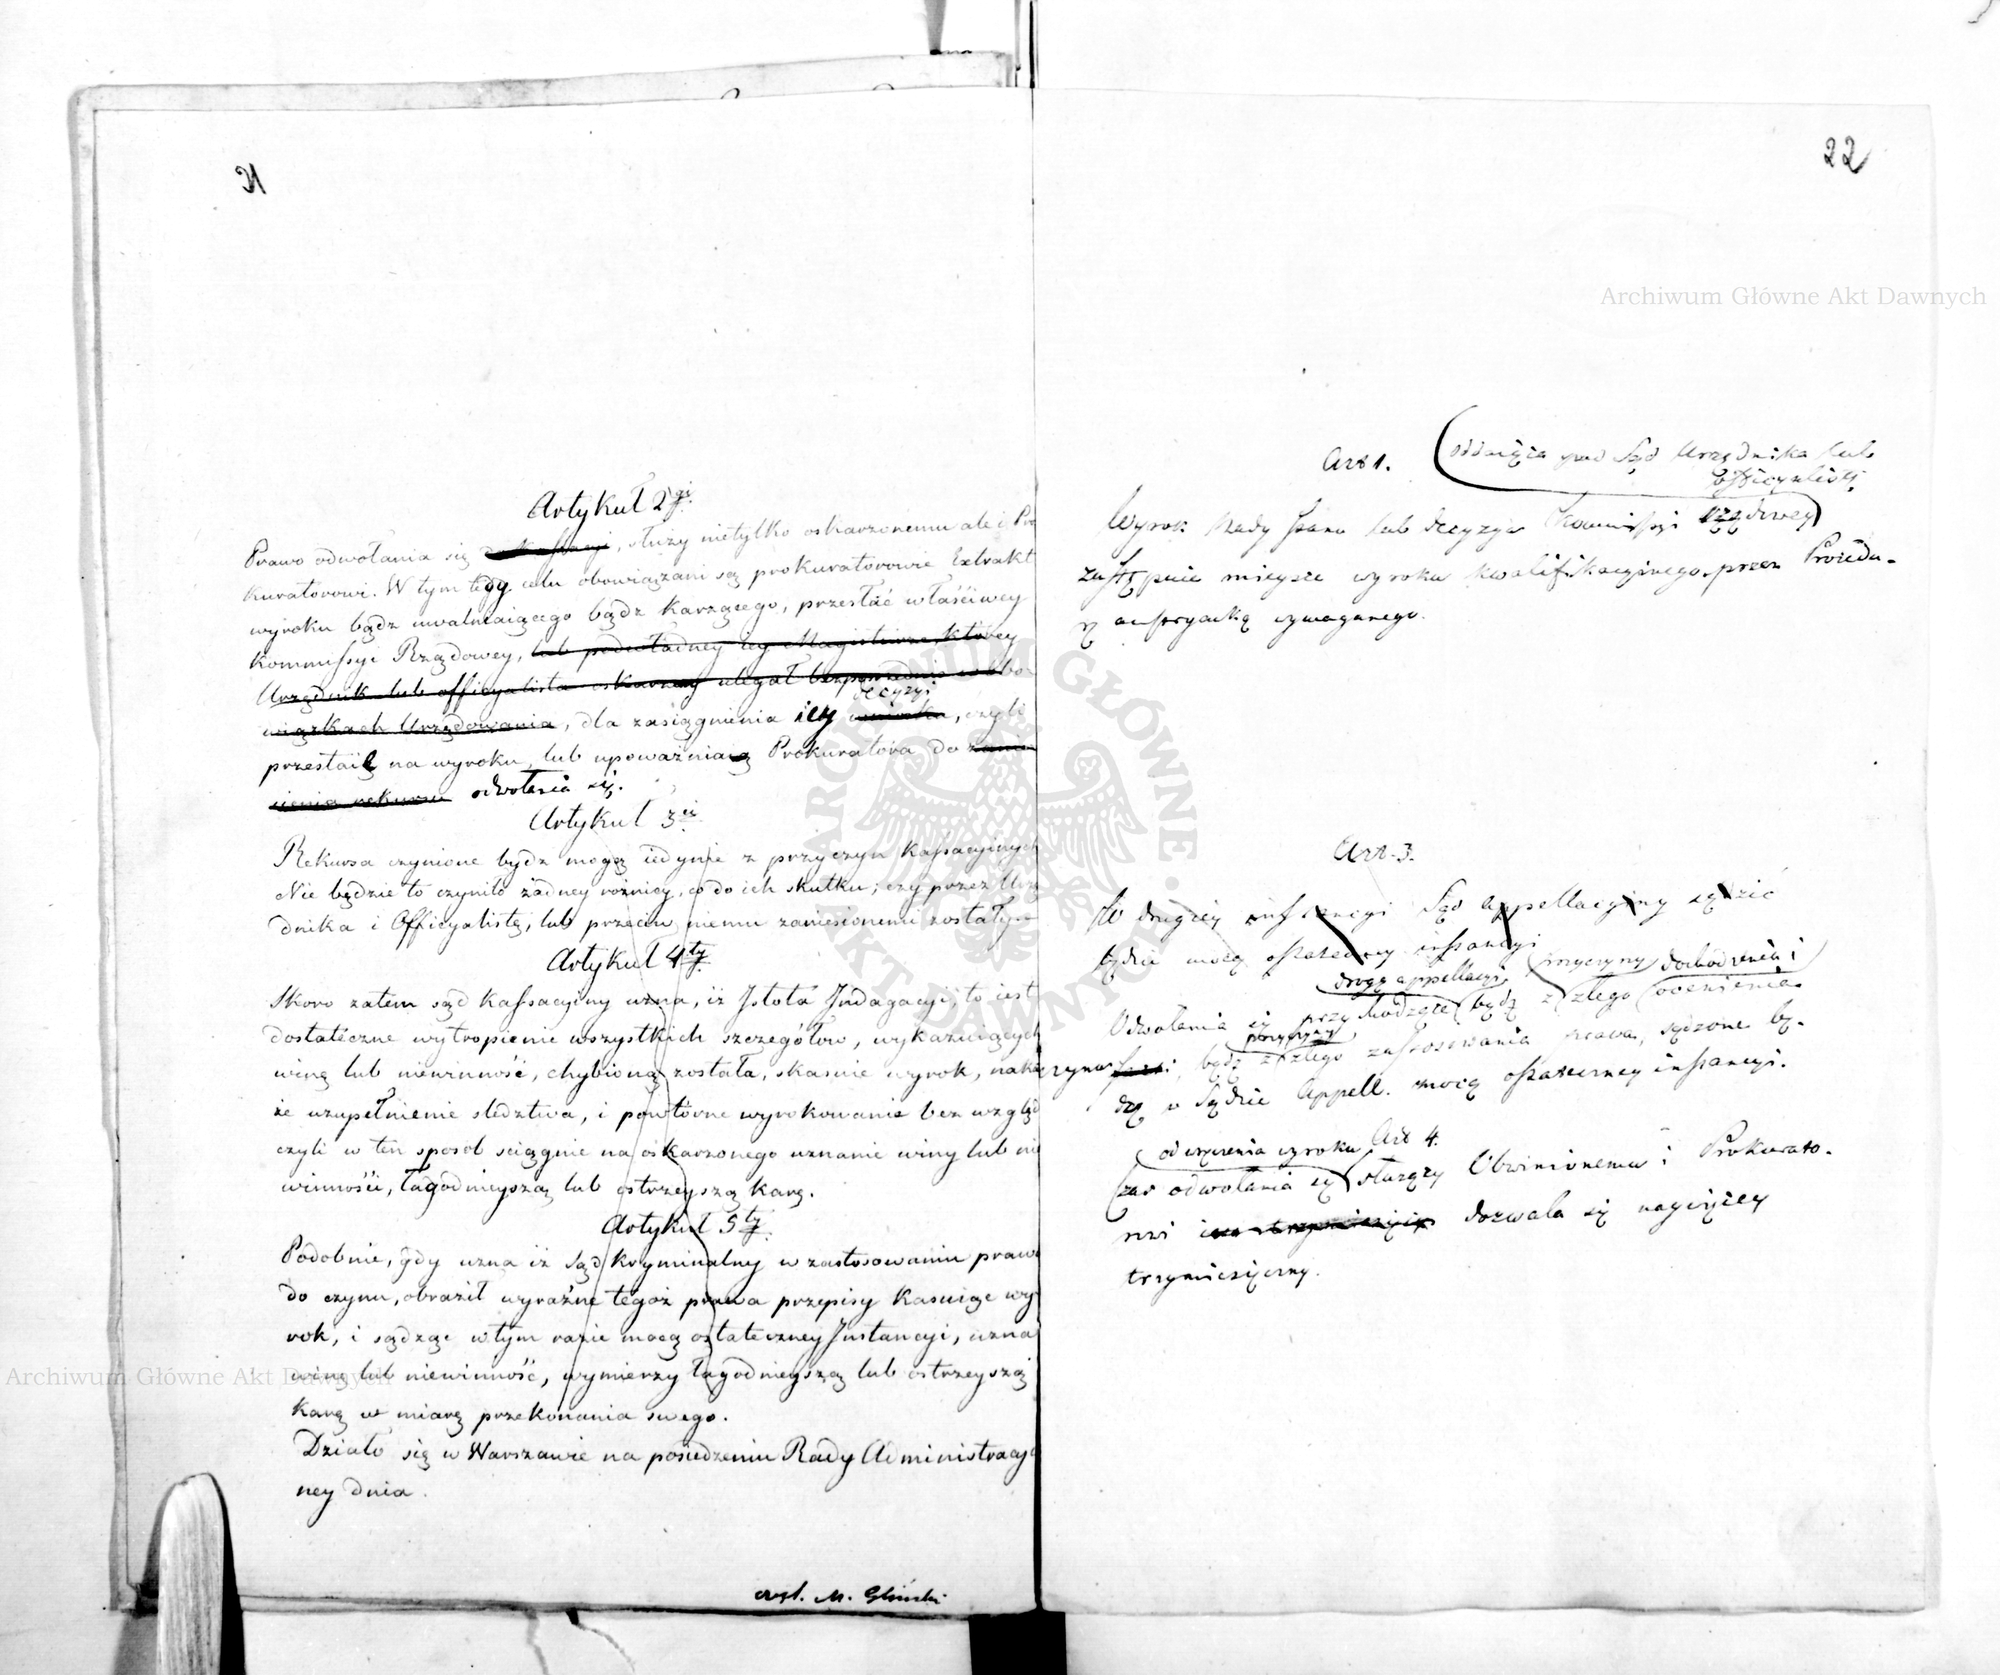 21
Artykuł 2gi.
Prawo odwołania się do Kassacyi, służy nietylko oskarżonemu ale i Pro
kuratorowi. W tym tegy celu obowiązani są prokuratorowie Extrakt
wyroku bądź uwalniaiącego bądź karzącego, przesłać właściwey
Kommissyi Rządowey, lub podwładney iey Magistraturze, którey
Urzędnik lub officyalista oskarżony ulegał bezpośrednio w obo
wiązkach Urzędowania, dla zasiągnienia iey
decyzyi
wniosku, czyli
przestaie na wyroku, lub upoważnia Prokuratora do zanie
sienia rekursu odwołania się.
Artykuł 3ci
Rekursa czynione bydź mogą iedynie z przyczyn Kassacyinych
Nie będzie to czyniło żadney różnicy, co do ich skutku; czy przez Urzę
dnika i Officyalistę, lub przeciw niemu zaniesionemi zostały.
Artykuł 4ty.
Skoro zatem sąd Kassacyiny uzna, iż Istota Indagacyi, to iest
dostateczne wytropienie wszystkich szczegółów, wykazuiących
winę lub niewinność, chybioną została, skasuie wyrok, naka
że uzupełnienie śledztwa, i powtórne wyrokowanie bez względu
czyli w ten sposób ściągnie na oskarżonego uznanie winy lub nie
winności, łagodnieyszą lub ostrzeyszą karę.
Artykuł 5ty.
Podobnie, gdy uzna iż Sąd kryminalny w zastosowaniu prawa
do czynu, obraził wyraźne tegoż prawa przepisy kasuiąc wy
rok, i sądząc w tym razie mocą ostateczney Instancyi, uzna
winę lub niewinność, wymierzy łagodnieyszą lub ostrzeyszą
karę w miarę przekonania swego.
Działo się w Warszawie na posiedzeniu Rady Administracyi
ney dnia.
M. Gliński
22
Art 1.
oddaiąca pod Sąd Urzędnika lub
Officyalistę
Wyrok Rady Stanu lub decyzya Kommissyi Rządowey
zastępuie mieysce wyroku kwalifikacyinego przez Procedu-
rę austryacką wymaganego.
Art. 3.
W drugiey instancyi Sąd appellacyiny sądzić
będzie mocą ostateczney instancyi
drogą appellacyi
przyczyny
dochodzenia i
Odwołania się przychodzące bądź z złego ocenienia
przyczyny
czynu, bądź z złego zastosowania prawa, sądzone bę-
dą w Sądzie Appell. mocą ostateczney instancyi.
Art 4.
od wyrzeczenia wyroku
Czas odwołania się służący Obwinionemu i Prokurato-
rowi dozwala się naywięcey
trzymiesięczny.
Archiwum Główne Akt Dawnych
Archiwum Główne Akt Dawnych
ARCHIWUM GŁÓWNE AKT DAWNYCH